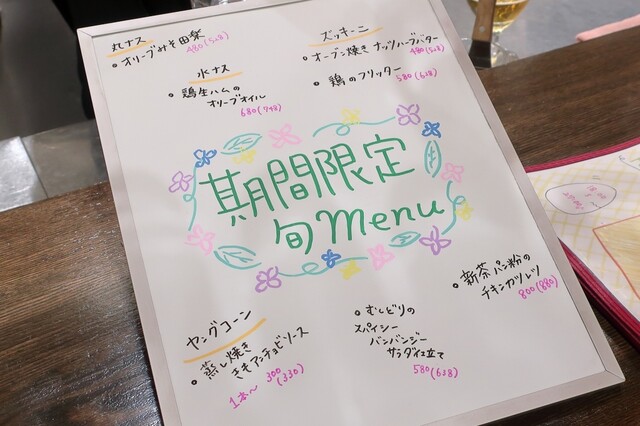 丸ナス
• オリーブみそ田楽
480(528)
水ナス
• 鶏生ハムの
オリーブオイル
680(748)
ズッキーニ
• オーブン焼き ナッツハーブバター
480(528)
• 鶏のフリッター
580(638)
期間限定
旬menu
ヤングコーン
• 蒸し焼き
きもアンチョビソース
1本〜 300
(330)
• むしどりの
スパイシー
バンバンジー
サラダ仕立て
580(638)
• 新茶パン粉の
チキンカツレツ
800(880)